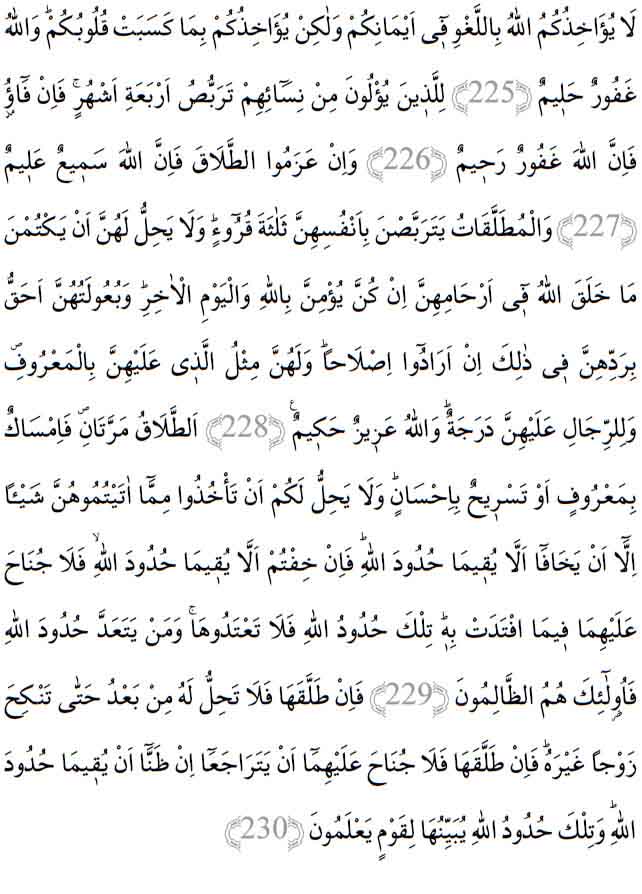 لَا يُؤَاخِذُكُمُ اللّٰهُ بِاللَّغْوِ فٖٓي اَيْمَانِكُمْ وَلٰكِنْ يُؤَاخِذُكُمْ بِمَا كَسَبَتْ قُلُوبُكُمْؕ وَاللّٰهُ
غَفُورٌ حَلٖيمٌ ﴿225﴾ لِلَّذٖينَ يُؤْلُونَ مِنْ نِسَٓائِهِمْ تَرَبُّصُ اَرْبَعَةِ اَشْهُرٍۚ فَاِنْ فَٓاؤُ۫
فَاِنَّ اللّٰهَ غَفُورٌ رَحٖيمٌ ﴿226﴾ وَاِنْ عَزَمُوا الطَّلَاقَ فَاِنَّ اللّٰهَ سَمٖيعٌ عَلٖيمٌ
﴿227﴾ وَالْمُطَلَّقَاتُ يَتَرَبَّصْنَ بِاَنْفُسِهِنَّ ثَلٰثَةَ قُرُٓوءٍؕ وَلَا يَحِلُّ لَهُنَّ اَنْ يَكْتُمْنَ
مَا خَلَقَ اللّٰهُ فٖٓي اَرْحَامِهِنَّ اِنْ كُنَّ يُؤْمِنَّ بِاللّٰهِ وَالْيَوْمِ الْاٰخِرِؕ وَبُعُولَتُهُنَّ اَحَقُّ
بِرَدِّهِنَّ فٖي ذٰلِكَ اِنْ اَرَادُٓوا اِصْلَاحاًؕ وَلَهُنَّ مِثْلُ الَّذٖي عَلَيْهِنَّ بِالْمَعْرُوفِۖ
وَلِلرِّجَالِ عَلَيْهِنَّ دَرَجَةٌؕ وَاللّٰهُ عَزٖيزٌ حَكٖيمٌࣖ ﴿228﴾ اَلطَّلَاقُ مَرَّتَانِۖ فَاِمْسَاكٌ
بِمَعْرُوفٍ اَوْ تَسْرٖيحٌ بِاِحْسَانٍؕ وَلَا يَحِلُّ لَكُمْ اَنْ تَأْخُذُوا مِمَّٓا اٰتَيْتُمُوهُنَّ شَيْـٔاً
اِلَّٓا اَنْ يَخَافَٓا اَلَّا يُقٖيمَا حُدُودَ اللّٰهِؕ فَاِنْ خِفْتُمْ اَلَّا يُقٖيمَا حُدُودَ اللّٰهِۙ فَلَا جُنَاحَ
عَلَيْهِمَا فٖيمَا افْتَدَتْ بِهٖؕ تِلْكَ حُدُودُ اللّٰهِ فَلَا تَعْتَدُوهَاۚ وَمَنْ يَتَعَدَّ حُدُودَ اللّٰهِ
فَاُو۬لٰٓئِكَ هُمُ الظَّالِمُونَ ﴿229﴾ فَاِنْ طَلَّقَهَا فَلَا تَحِلُّ لَهُ مِنْ بَعْدُ حَتّٰى تَنْكِحَ
زَوْجاً غَيْرَهُؕ فَاِنْ طَلَّقَهَا فَلَا جُنَاحَ عَلَيْهِمَٓا اَنْ يَتَرَاجَعَٓا اِنْ ظَنَّٓا اَنْ يُقٖيمَا حُدُودَ
اللّٰهِؕ وَتِلْكَ حُدُودُ اللّٰهِ يُبَيِّنُهَا لِقَوْمٍ يَعْلَمُونَ ﴿230﴾